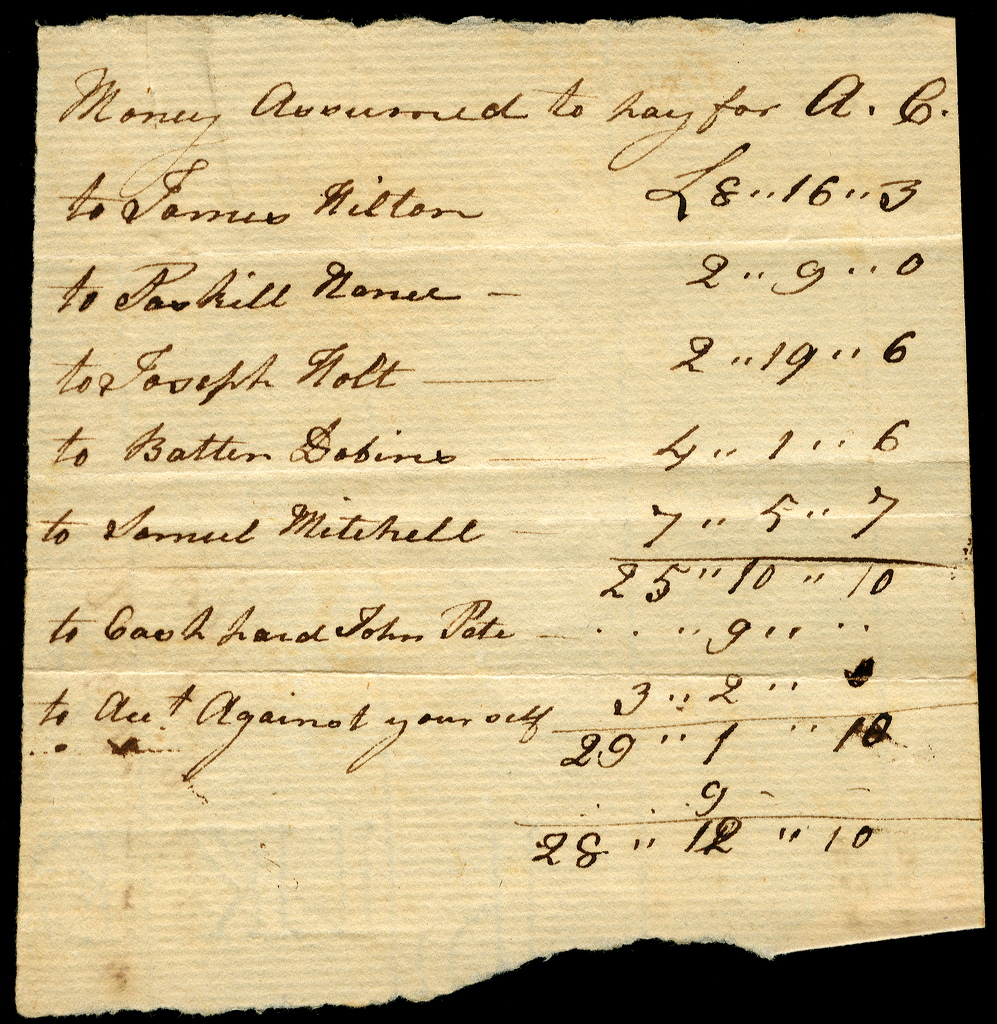 Money Assumed to pay for A. C.
to James Hilton £8 " 16 " 3
to Paskill Hance — 2 " 9 " 0
to Joseph Holt — 2 " 19 " 6
to Batten Dobins — 4 " 1 " 6
to Samuel Mitchell — 7 " 5 " 7
25 " 10 " 10
to Cash paid John Pate — . . " 9 " "
to Acct Against yourself 3 " 2 "
29 " 1 " 10
. . 9 - -
28 " 12 " 10